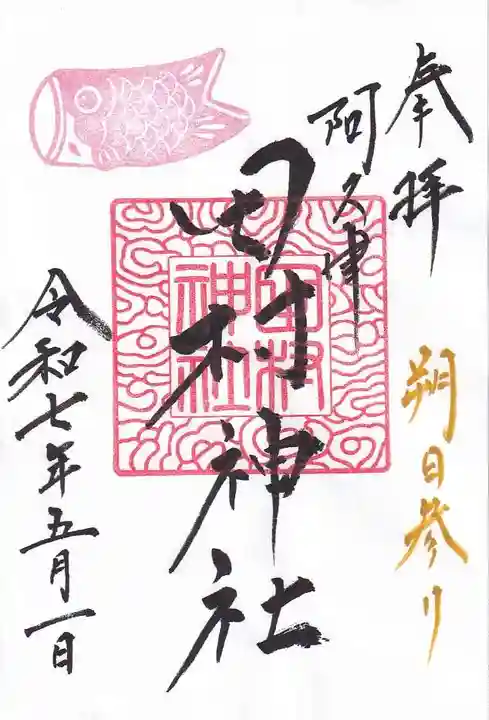 奉拝
朔日参り
阿久津
田村神社
田村
神社
令和七年五月一日